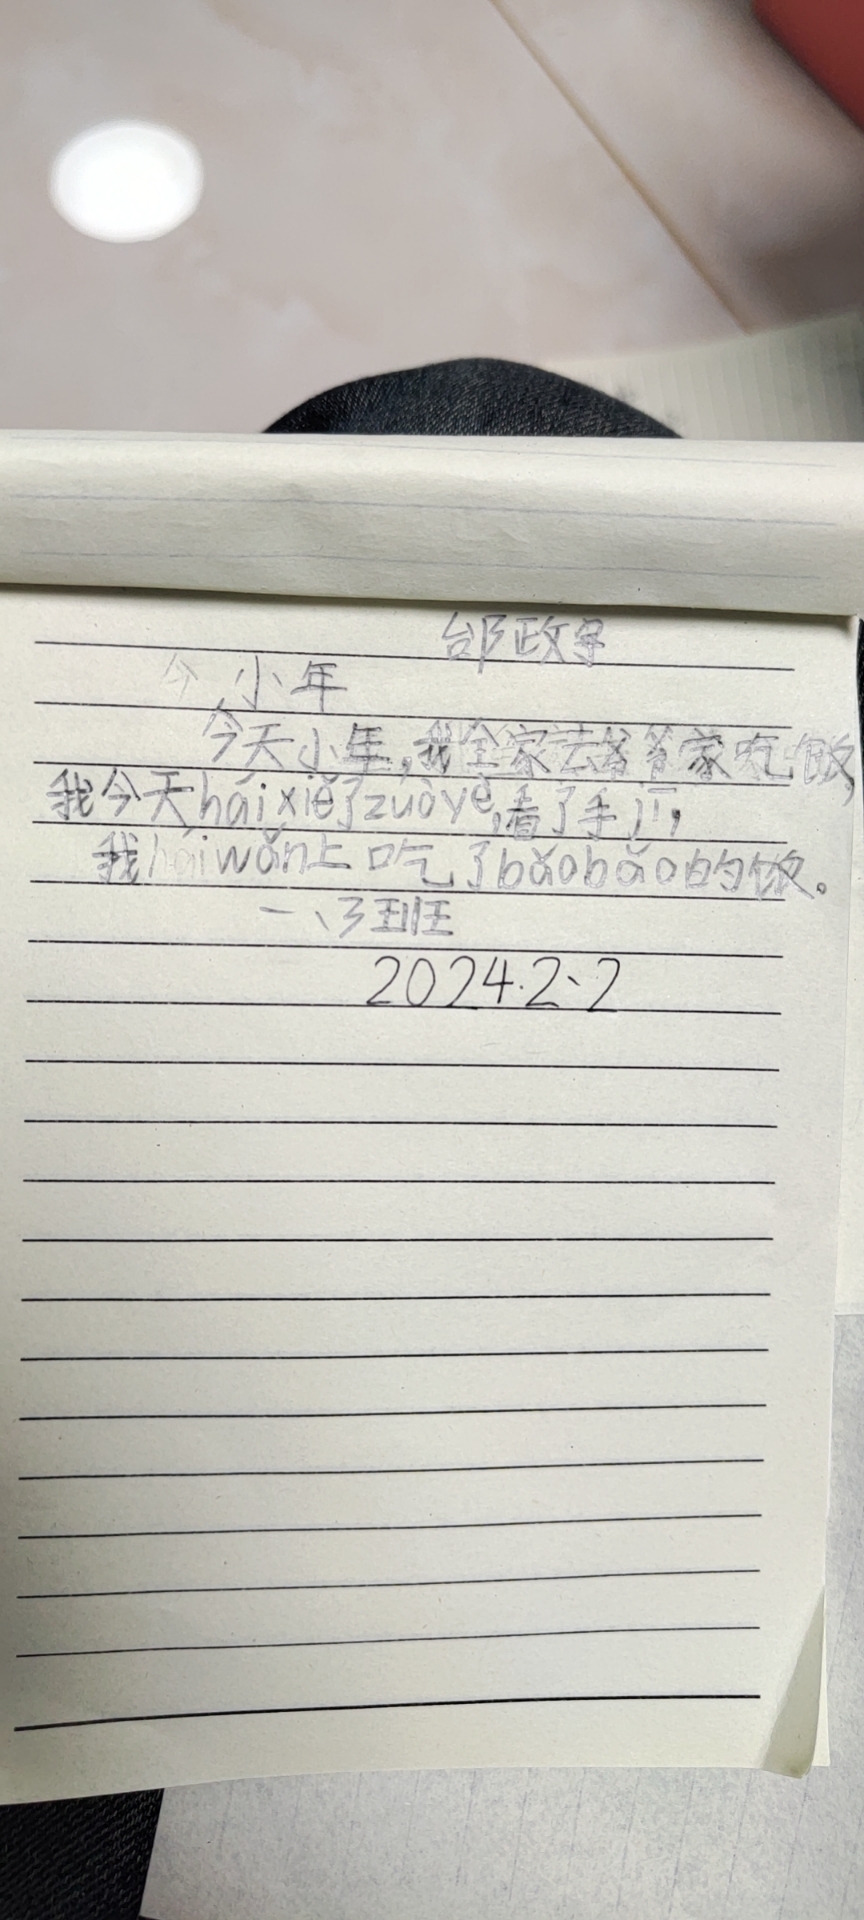 邰政宇
今 小年
今天小年,我全家去爷爷家吃饭,
我今天hái xiě了zuò yè,看了手jī,
我hái wǎn上吃了bǎo bǎo的饭。
一、3班
2024.2、2